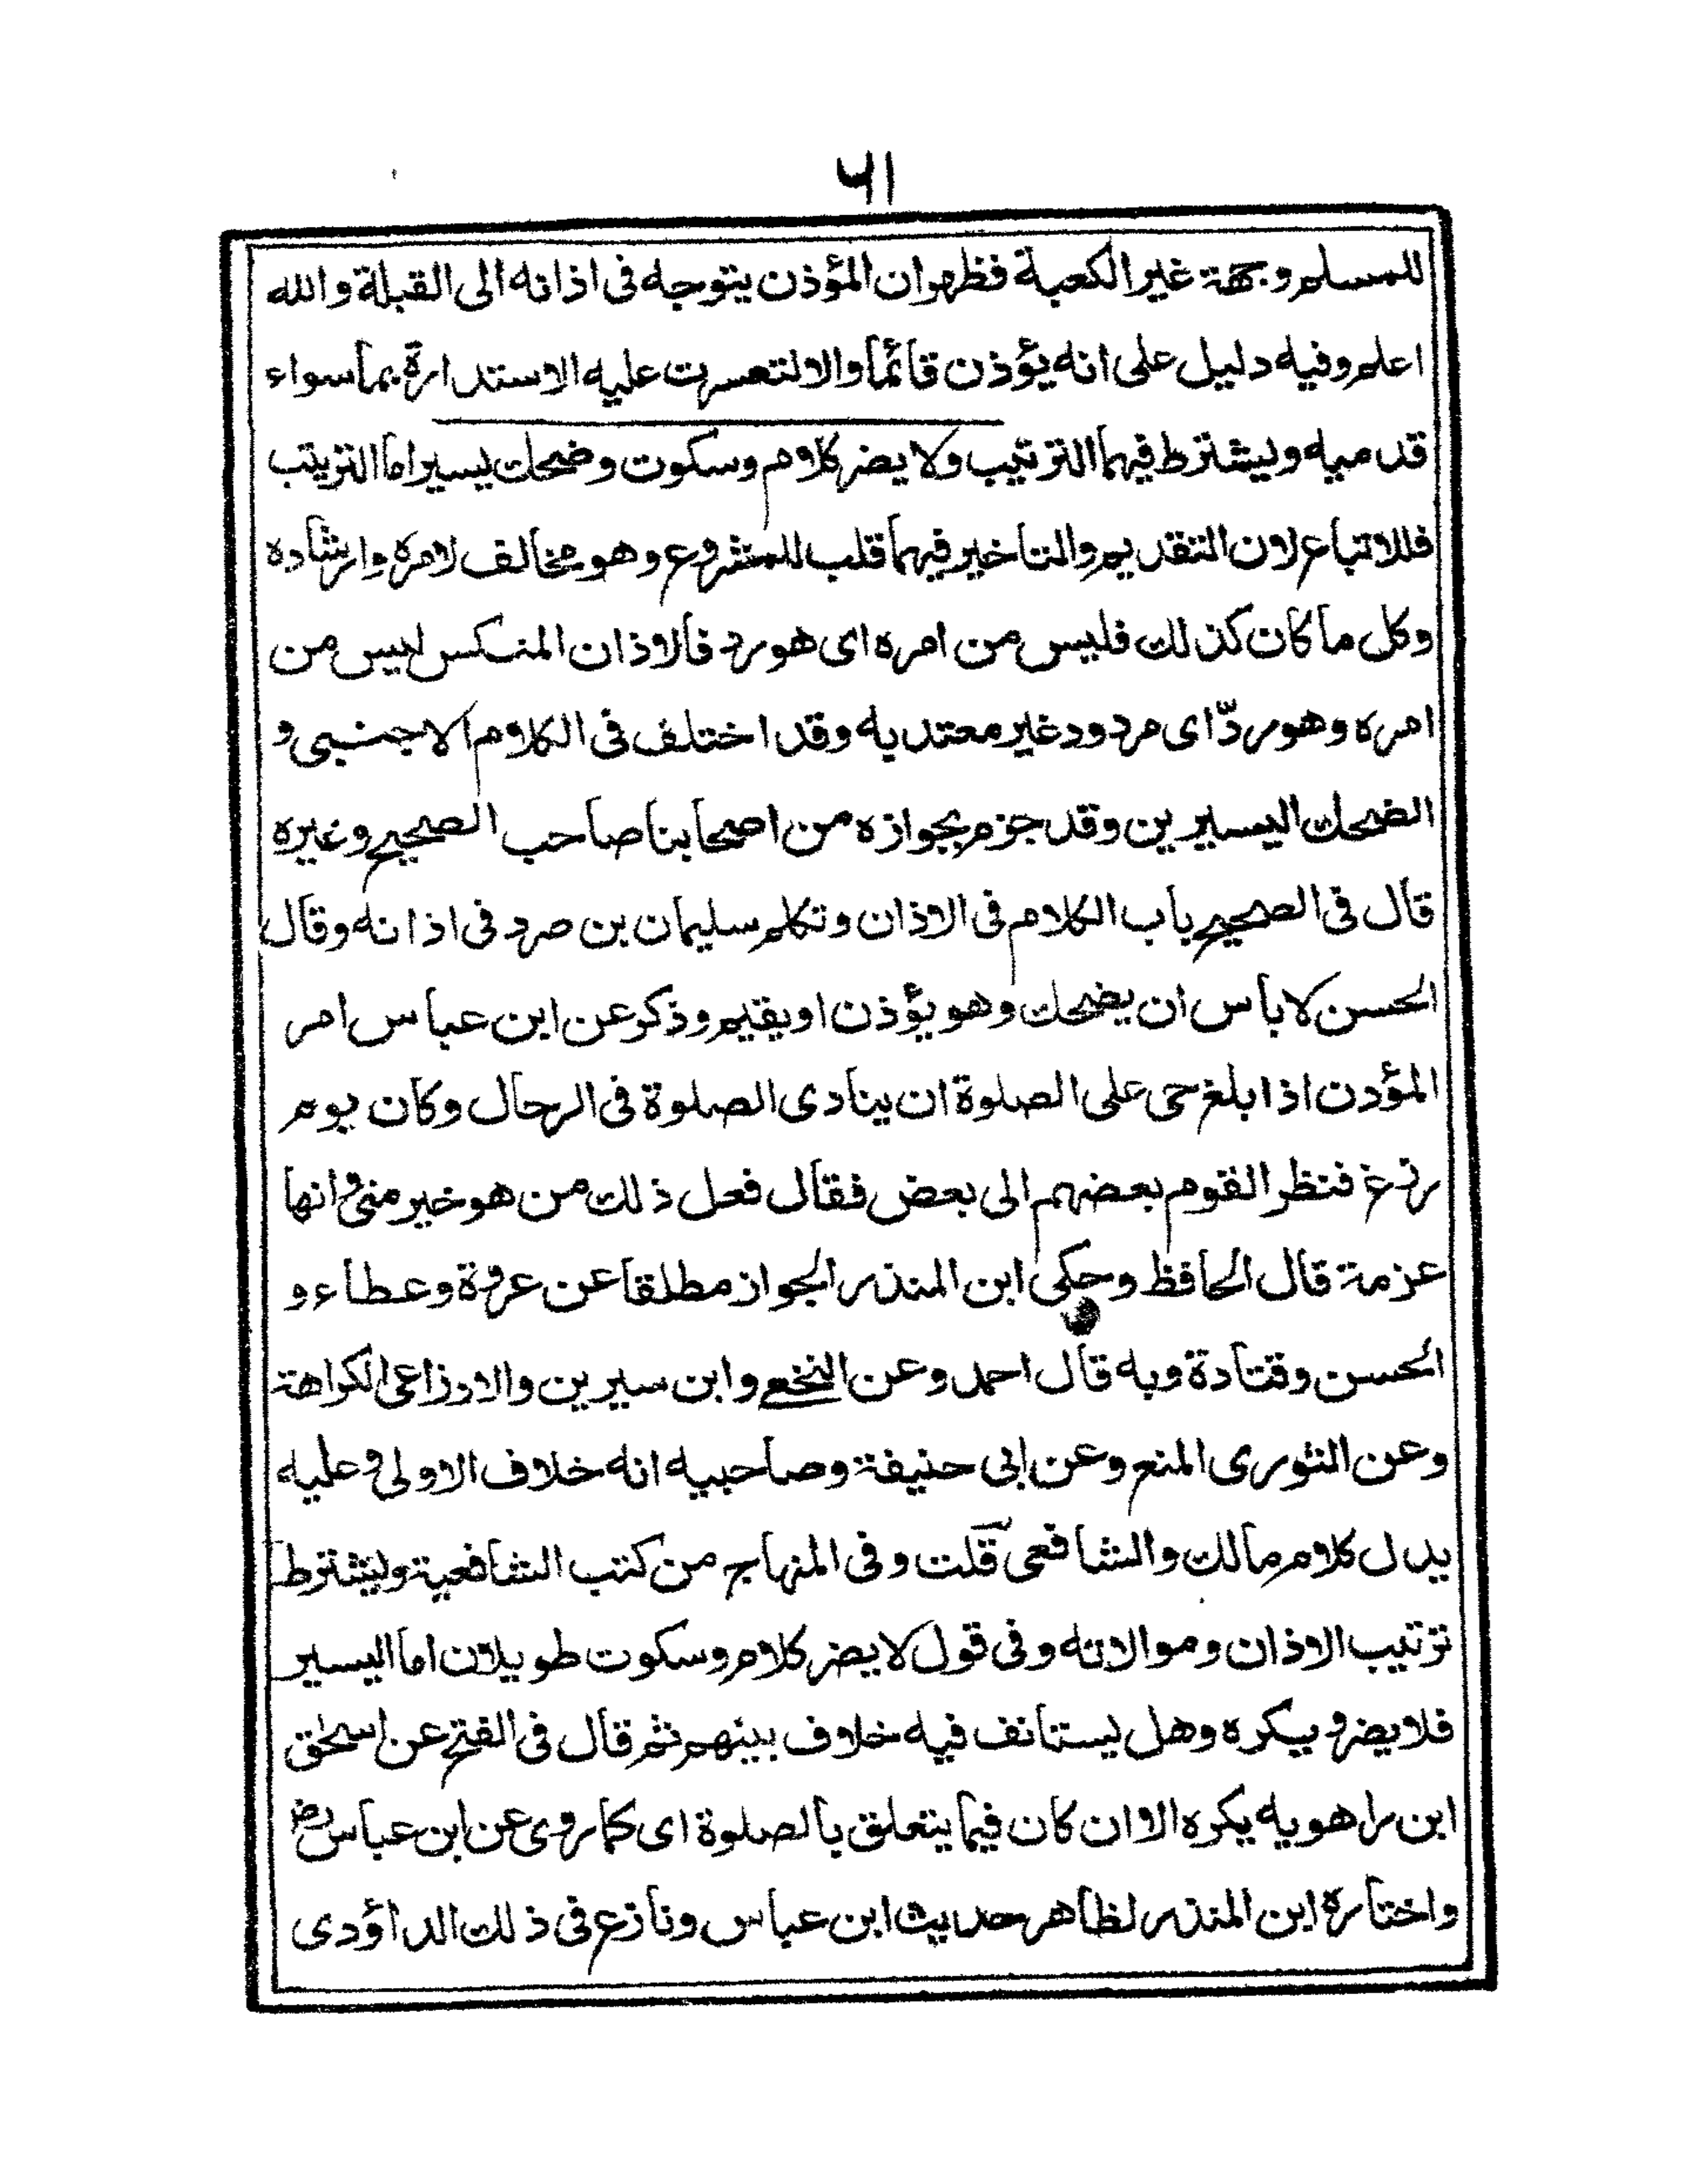 ۶۱
للمسلم وجهة غير الكعبة فظهر ان المؤذن يتوجه فى اذانه الى القبلة والله
اعلم وفيه دليل على انه يؤذن قائما والا لتعسرت عليه الاستدارة بما سواء
قدميه ويشترط فيهما الترتيب ولا يضر كلام وسكوت وضحك يسير اما الترتيب
فللاتباع لان التقديم والتاخير فيهما قلب للمشروع وهو مخالف لامره وارشاده
وكل ما كان كذلك فليس من امره اى هو رد فالاذان المنكس ليس من
امره وهو ردّ اى مردود غير معتد به وقد اختلف فى الكلام الاجنبى و
الضحك اليسيرين وقد جزم بجوازه من اصحابنا صاحب الصحيح وغيره
قال فى الصحيح باب الكلام فى الاذان وتكلم سليمان بن صرد فى اذانه وقال
الحسن لا باس ان يضحك وهو يؤذن او يقيم وذكر عن ابن عباس امر
المؤذن اذا بلغ حى على الصلوة ان ينادى الصلوة فى الرحال وكان يوم
رزغ فنظر القوم بعضهم الى بعض فقال فعل ذلك من هو خير منى وانها
عزمة قال الحافظ وحكى ابن المنذر الجواز مطلقا عن عروة وعطاء و
الحسن وقتادة وبه قال احمد وعن النخعي وابن سيرين والاوزاعى الكراهة
وعن الثورى المنع وعن ابى حنيفة وصاحبيه انه خلاف الاولى وعليه
يدل كلام مالك والشافعى قلت وفى المنهاج من كتب الشافعية ويشترط
ترتيب الاذان وموالاته وفى قول لا يضر كلام وسكوت طويلان اما اليسير
فلا يضر ويكره وهل يستانف فيه خلاف بينهم ثم قال فى الفتح عن اسحق
ابن راهويه يكره الا ان كان فيما يتعلق بالصلوة اى كما روى عن ابن عباس رض
واختاره ابن المنذر لظاهر حديث ابن عباس ونازع فى ذلك الداؤدى